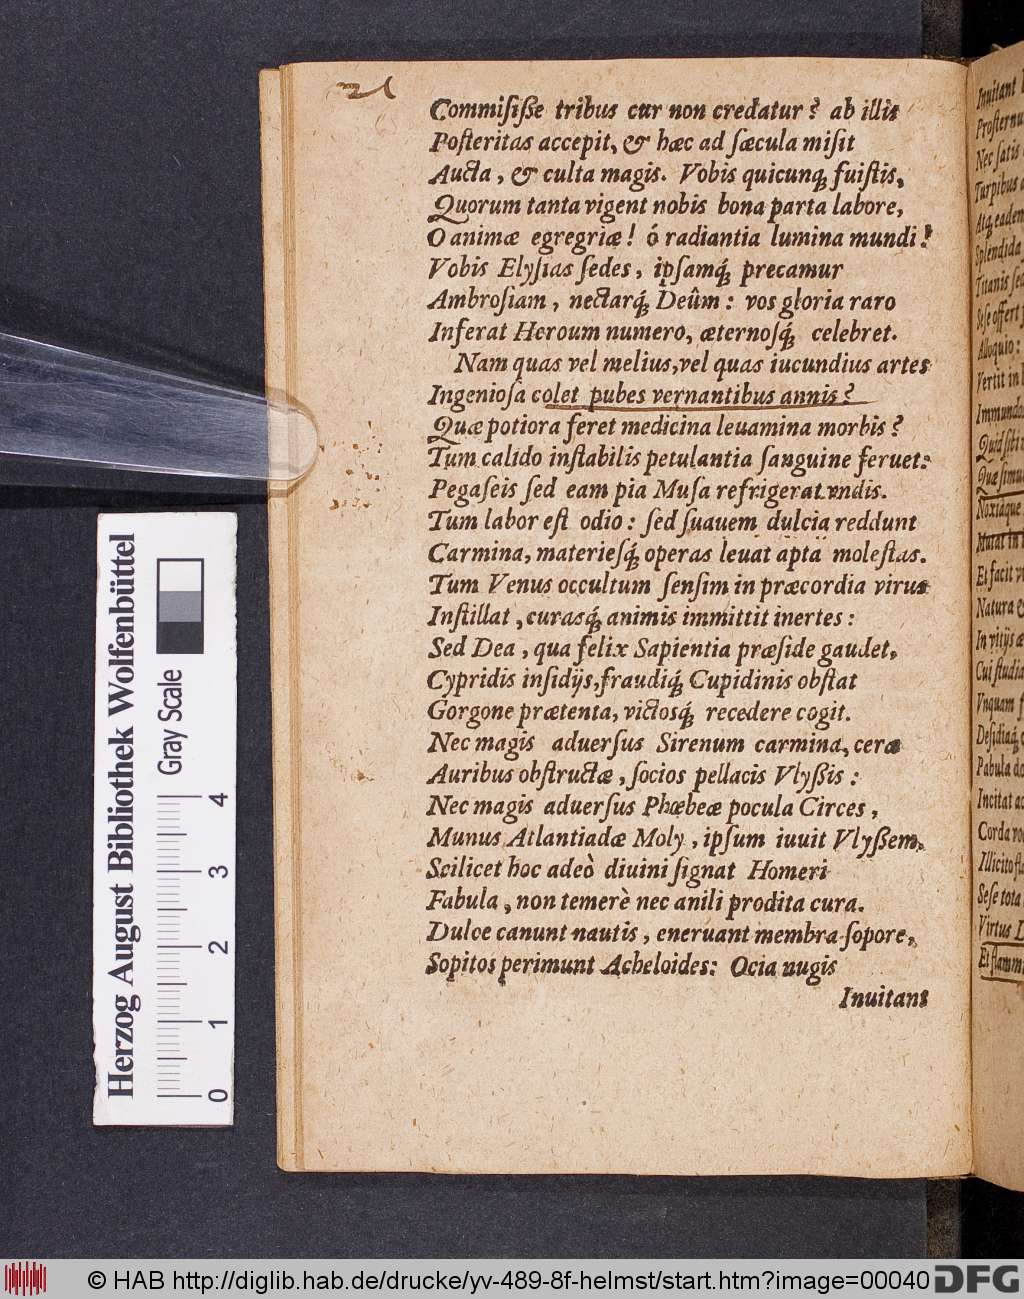 21
Commiſiße tribus cur non credatur? ab illis
Poſteritas accepit, & hæc ad ſæcula miſit
Aucta, & culta magis. Vobis quicunq́; fuiſtis,
Quorum tanta vigent nobis bona parta labore,
O animæ egregriæ! ó radiantia lumina mundi!
Vobis Elyſias ſedes, ipſamq́; precamur
Ambroſiam, nectarq́; Deûm: vos gloria raro
Inferat Heroum numero, æternoſq́; celebret.
Nam quas vel melius, vel quas iucundius artes
Ingenioſa colet pubes vernantibus annis?
Quæ potiora feret medicina leuamina morbis?
Tum calido inſtabilis petulantia ſanguine feruet:
Pegaſeis ſed eam pia Muſa refrigerat vndis.
Tum labor eſt odio: ſed ſuauem dulcia reddunt
Carmina, materieſq́; operas leuat apta moleſtas.
Tum Venus occultum ſenſim in præcordia virus
Inſtillat, curasq́; animis immittit inertes:
Sed Dea, qua felix Sapientia præſide gaudet,
Cypridis inſidijs, fraudiq́; Cupidinis obſtat
Gorgone prætenta, victosq́; recedere cogit.
Nec magis aduerſus Sirenum carmina, ceræ
Auribus obſtructæ, ſocios pellacis Vlyßis:
Nec magis aduerſus Phœbeæ pocula Circes,
Munus Atlantiadæ Moly, ipſum iuuit Vlyßem,
Scilicet hoc adeò diuini ſignat Homeri
Fabula, non temerè nec anili prodita cura.
Dulce canunt nautis, eneruant membra ſopore,
Sopitos perimunt Acheloides: Ocia nugis
Inuitant
Inuitant
Nec ſatis
Turpibus
Splendida
Titanis
Seſe offert
Alloquio:
Vertit in
Quæ ſimu
Noxiaque
Mutat in
Et facit
Natura &
In vitijs
Cui ſtudia
Vnquam
Deſidiaq́;
Pabula
Incitat
Corda
Seſe tota
Virtus
Et flamm
Herzog August Bibliothek Wolfenbüttel
Gray Scale
0 1 2 3 4
© HAB http://diglib.hab.de/drucke/yv-489-8f-helmst/start.htm?image=00040
DFG